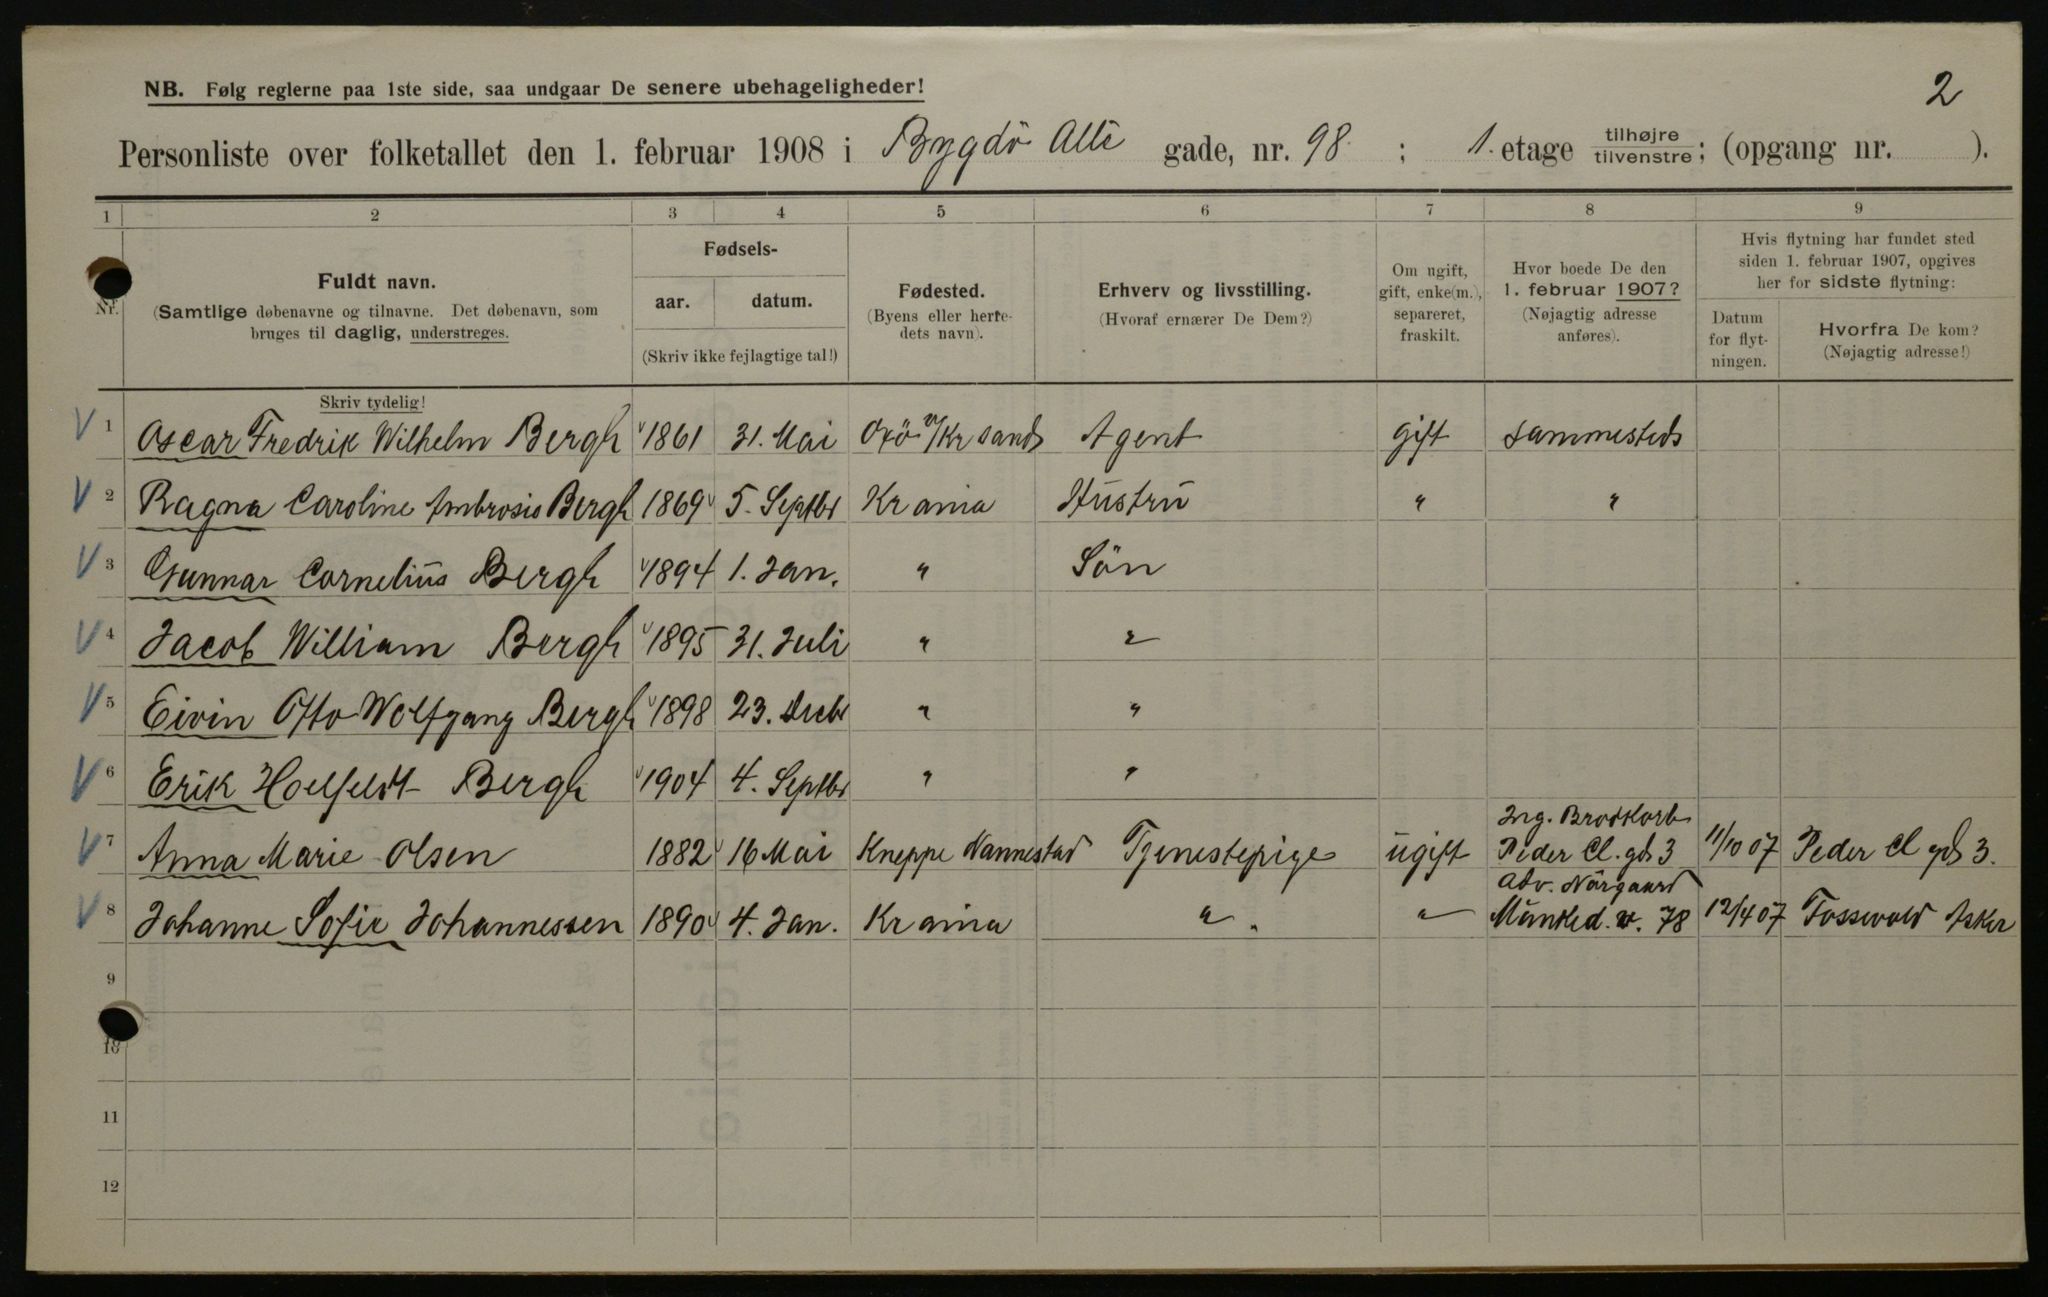 2
NB. Følg reglerne paa 1ste side, saa undgaar De senere ubehageligheder!
Personliste over folketallet den 1. februar 1908 i Bygdö Allé gade, nr. 98 ; 1. etage tilhøjre tilvenstre; (opgang nr. ).
1 2 3 4 5 6 7 8 9
Nr.
Fuldt navn.
(Samtlige døbenavne og tilnavne. Det døbenavn, som
bruges til daglig, understreges.
Skriv tydelig!
Fødsels-
aar. datum.
(Skriv ikke fejlagtige tal!)
Fødested.
(Byens eller herre-
dets navn).
Erhverv og livsstilling.
(Hvoraf ernærer De Dem?)
Om ugift,
gift, enke(m.),
separeret,
fraskilt.
Hvor boede De den
1. februar 1907?
(Nøjagtig adresse
anføres).
Hvis flytning har fundet sted
siden 1. februar 1907, opgives
her for sidste flytning:
Datum
for flyt-
ningen.
Hvorfra De kom?
(Nøjagtig adresse!)
1 Oscar Fredrik Wilhelm Bergh 1861 31. Mai Oxö v/Krsand Agent gift sammesteds
2 Ragna Caroline Ambrosia Bergh 1869 5. Septbr Krania Hustru " "
3 Gunnar Cornelius Bergh 1894 1. Jan. " Sön
4 Jacob William Bergh 1895 31. Juli " "
5 Eivin Otto Wolfgang Bergh 1898 23. Decbr " "
6 Erik Hoelfeldt Bergh 1904 4. Septbr " "
Ing. Brodkorb
7 Anna Marie Olsen 1882 16 Mai Kneppe Nannestad Tjenestepige ugift Peder Cl. gd 3 11/10 07 Peder Cl gd 3.
Adv. Nörgaard
8 Johanne Sofie Johannessen 1890 4. Jan. Krania " " Munked. v. 78 12/4 07 Fossvold Asker
9
10
11
12